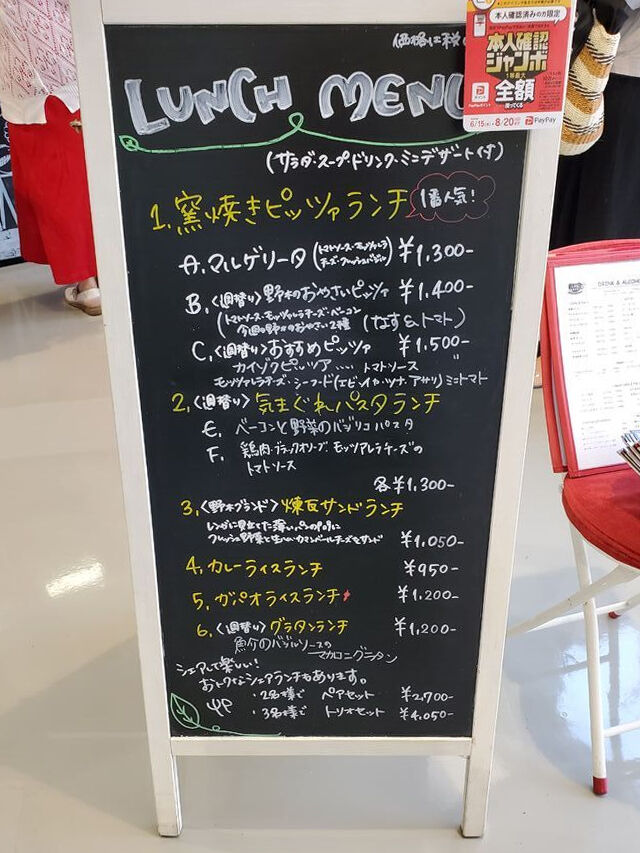 価格は税
LUNCH MENU
(サラダ・スープドリンク・ミニデザート付)
1. 窯焼きピッツァランチ
1番人気!
A. マルゲリータ (トマトソース・モッツァレラ ¥1,300-
チーズ・フレッシュバジル)
B. 〈週替り〉野木のおやさいピッツァ ¥1,400-
(トマトソース・モッツァレラチーズ・ベーコン
今週の野木のおやさい2種 (なす&トマト)
C. 〈週替り〉おすすめピッツァ ¥1,500-
カイゾクピッツア ‥‥ トマトソース
モッツァレラチーズ・シーフード(エビ・イカ・ツナ・アサリ) ミニトマト
2. 〈週替り〉気まぐれパスタランチ
E. ベーコンと野菜のバジリコパスタ
F. 鶏肉・ブラックオリーブ モッツァレラチーズの
トマトソース
各¥1,300-
3. 〈野木ブランド〉煉瓦サンドランチ
レンガに見立てた薄いパンの中に
フレッシュ野菜と生ハム・カマンベールチーズをサンド ¥1,050-
4. カレーライスランチ ¥950-
5. ガパオライスランチ ¥1,200-
6. 〈週替り〉グラタンランチ ¥1,200-
バジルソースの
マカロニグラタン
シェアして楽しい!
おトクなシェアランチもあります。
・2名様で ペアセット ¥2,700-
・3名様で トリオセット ¥4,050-
本人確認済みの方限定
本人確認
ジャンボ
1等最大
全額
戻ってくる
6/15 8/20
PayPay
DRINK & ALCOHOL